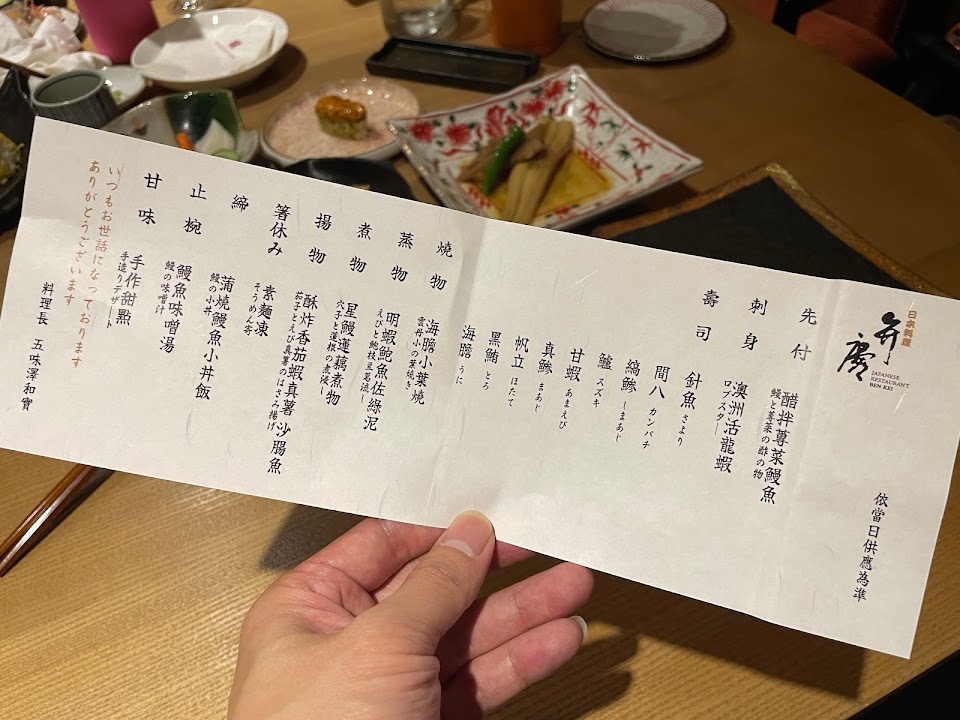 日本料理
弁慶
JAPANESE
RESTAURANT
BEN KEI
依當日供應為準
先付
醋拌蓴菜鰻魚
鰻と蓴菜の酢の物
刺身
澳洲活龍蝦
ロブスター
壽司
針魚 さより
間八 カンパチ
縞鰺 しまあじ
鱸 スズキ
甘蝦 あまえび
真鰺 まあじ
帆立 ほたて
黑鮪 とろ
海膽 うに
燒物
海膽小葉燒
雲母小の葉焼き
蒸物
明蝦鮑魚佐綠泥
えびと鮑枝豆葛流し
煮物
星鰻蓮藕煮物
穴子と蓮根の煮浸し
揚物
酥炸香茄蝦真薯 沙腸魚
茄子とえび真薯のはさみ揚げ
箸休み
素麵凍
そうめん寄
締
蒲燒鰻魚小丼飯
鰻の小丼
止椀
鰻魚味噌湯
鰻の味噌汁
甘味
手作甜點
手造りデザート
いつもお世話になっております
ありがとうございます
料理長 五味澤和實